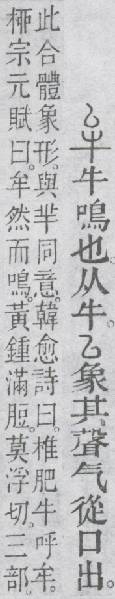 𠃋牛牛鳴也。从牛。乙象其聲气從口出。
此合體象形。與羋同意。韓愈詩曰。椎肥牛呼牟。
柳宗元賦曰。牟然而鳴。黃鍾滿脰。莫浮切。三部。